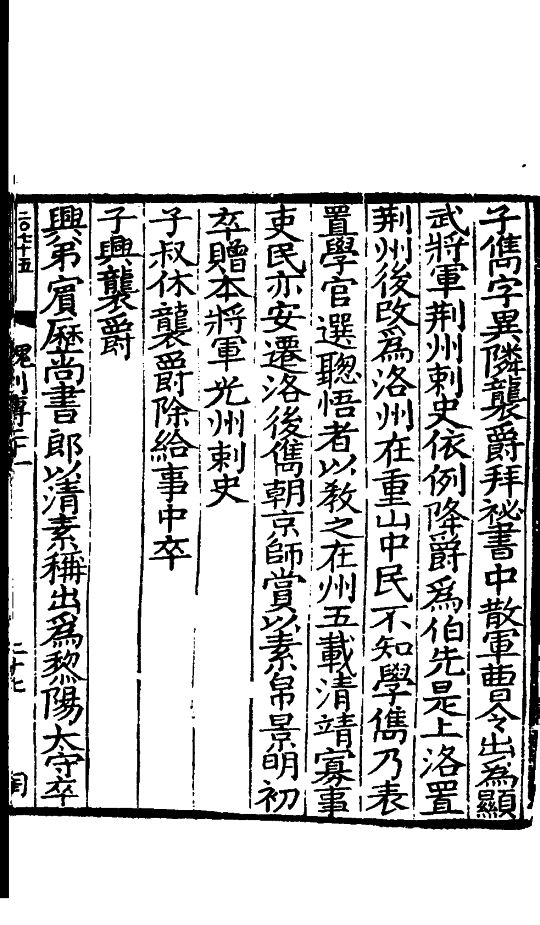 子儁字異隣襲爵拜祕書中散軍曹令出為顯
武將軍荆州刺史依例降爵爲伯先是上洛置
荆州後改爲洛州在重山中民不知學儁乃表
置學官選聰悟者以敎之在州五載清靖寡事
吏民亦安遷洛後儁朝京師賞以素帛景明初
卒贈本將軍光州刺史
子叔休襲爵除給事中卒
子興襲爵
興弟賔歷尚書郎以清素稱出爲黎陽太守卒
二〇七十五
二十七